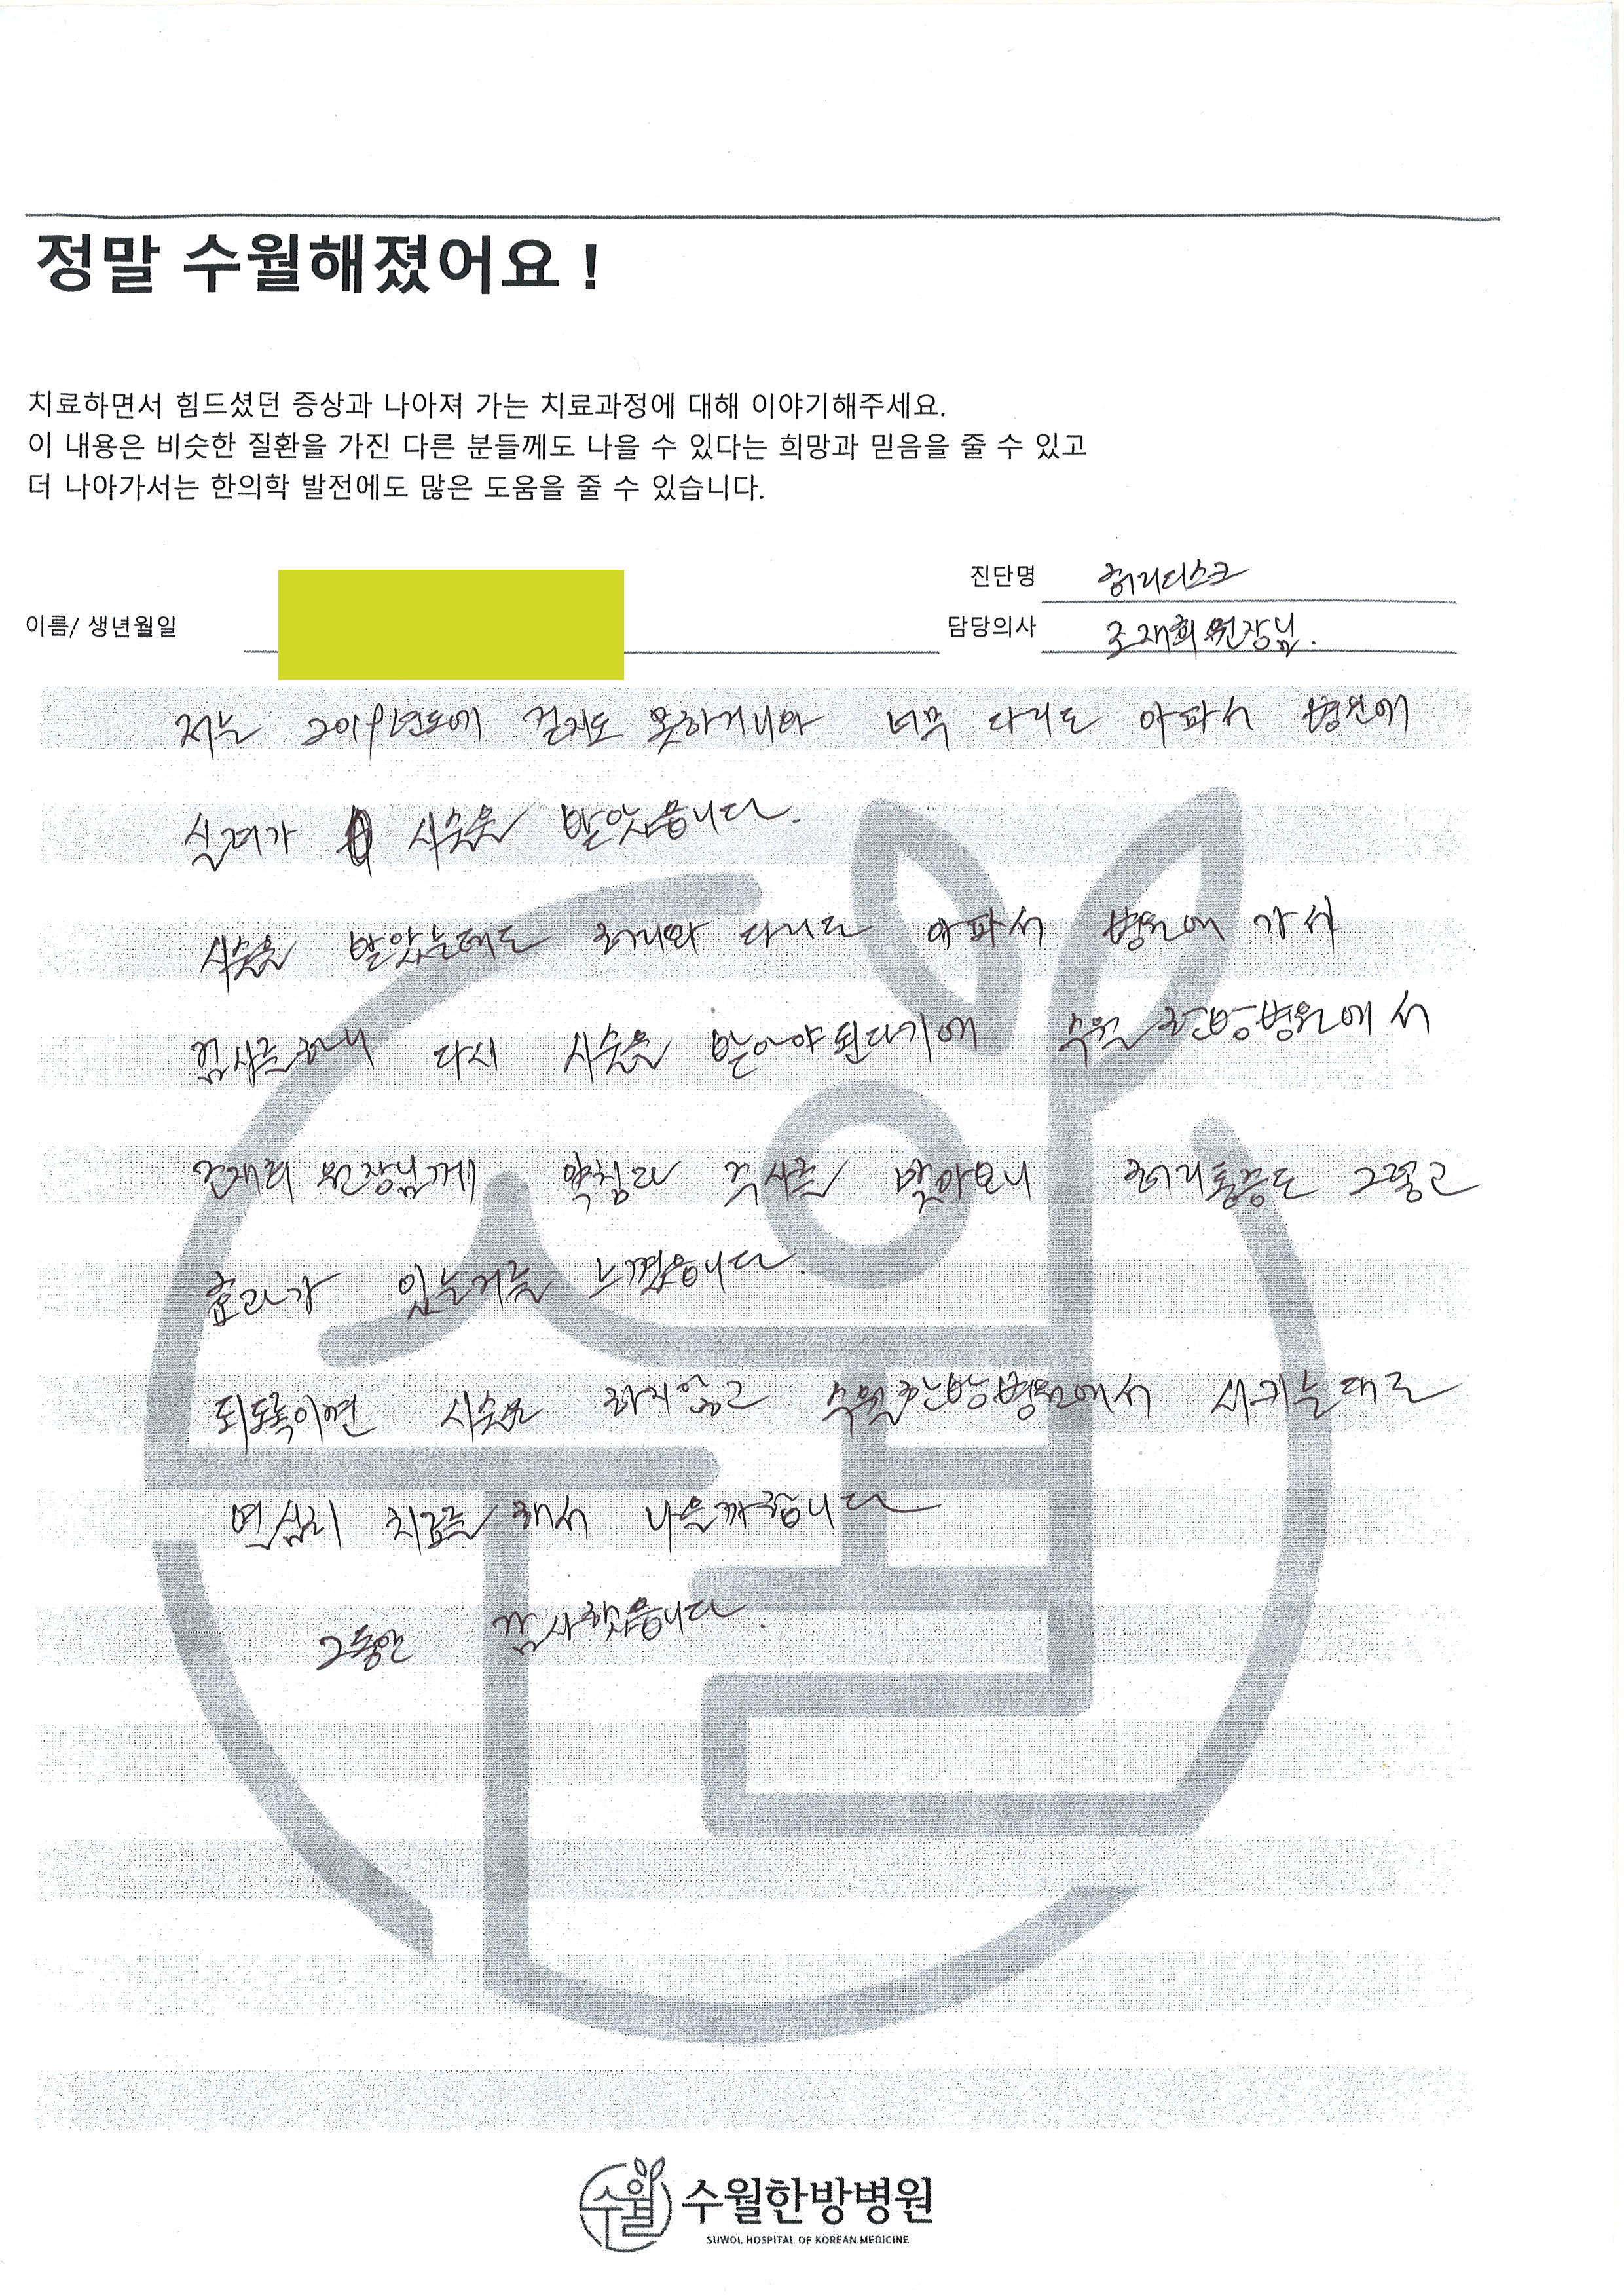 정말 수월해졌어요 !
치료하면서 힘드셨던 증상과 나아져 가는 치료과정에 대해 이야기해주세요.
이 내용은 비슷한 질환을 가진 다른 분들께도 나을 수 있다는 희망과 믿음을 줄 수 있고
더 나아가서는 한의학 발전에도 많은 도움을 줄 수 있습니다.
진단명 허리디스크
이름/ 생년월일
담당의사 조재희 원장님.
저는 2019년도에 걷지도 못하거니와 너무 다리도 아파서 병원에
실려가 시술을 받았읍니다.
시술을 받았는데도 허리와 다리도 아파서 병원에 가서
검사를 하니 다시 시술을 받아야 된다기에 수월 한방병원에서
조재희 원장님께 약침과 주사를 맞아보니 허리통증도 그렇고
효과가 있는거를 느꼈읍니다.
되도록이면 시술은 하지않고 수월한방병원에서 시키는대로
면심히 치료를 해서 나을까합니다
그동안 감사했읍니다.
수월
수월한방병원
SUWOL HOSPITAL OF KOREAN MEDICINE